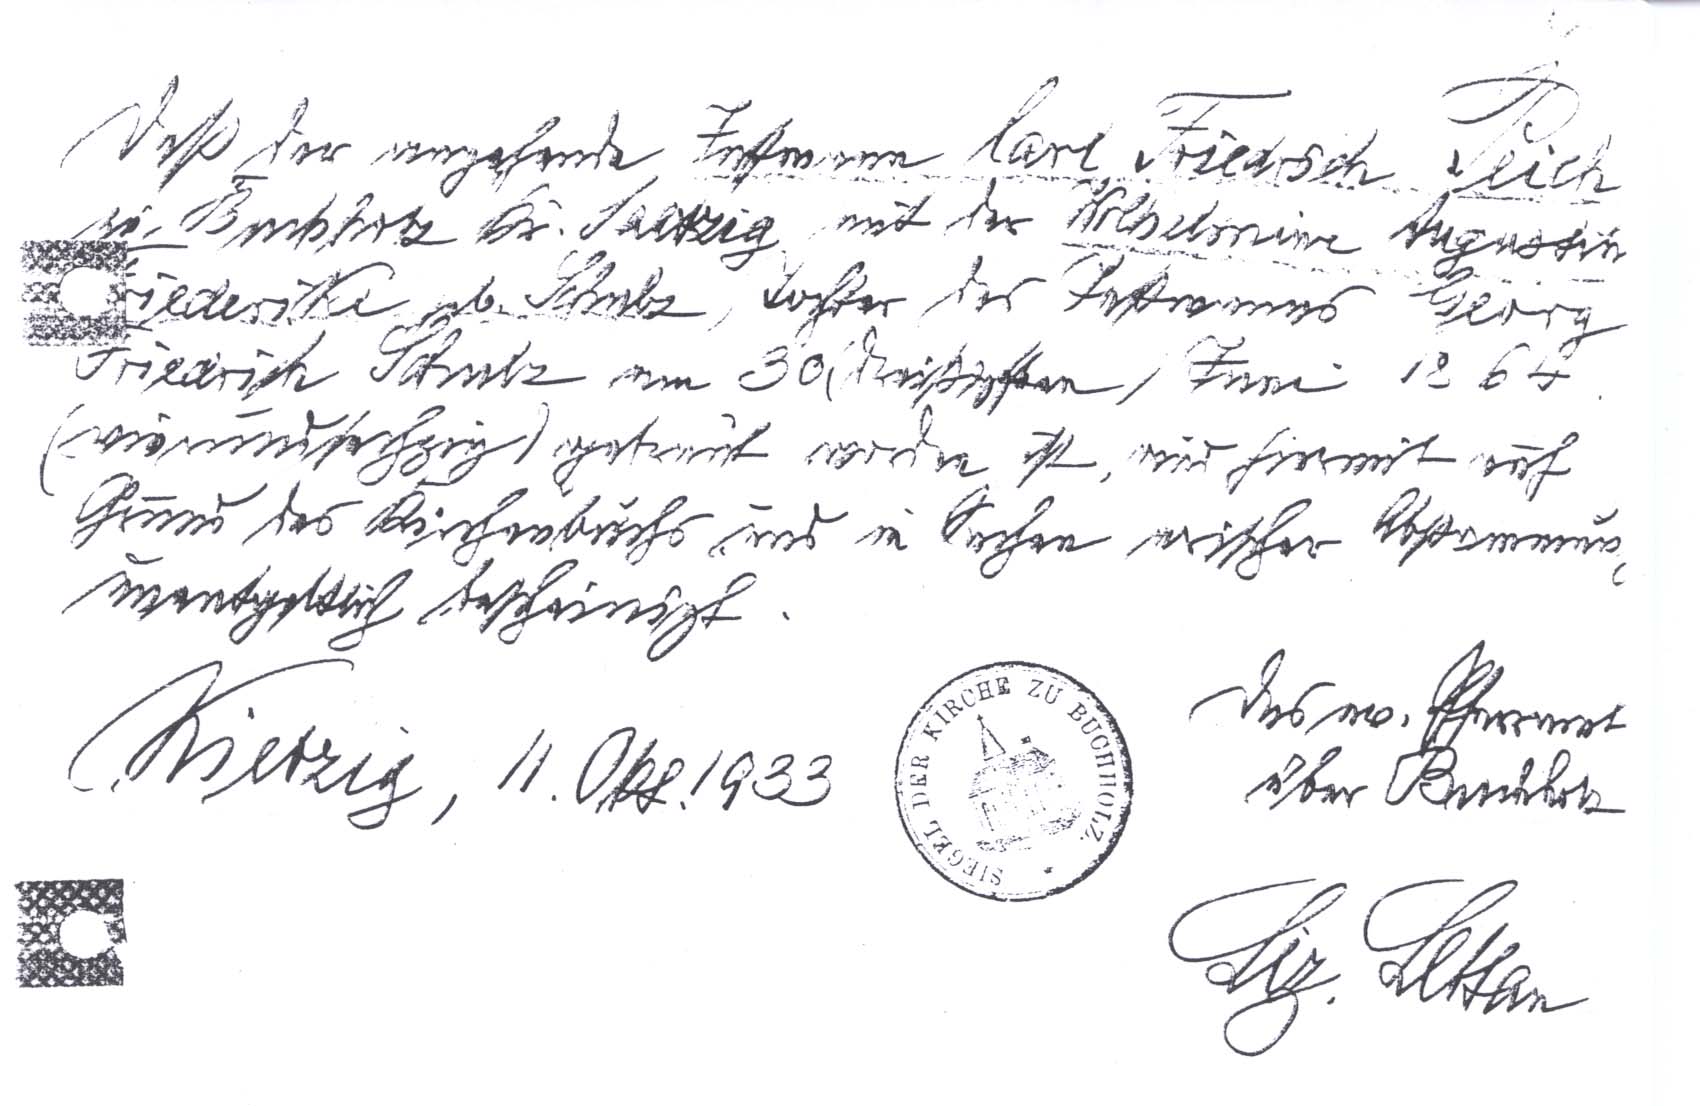 Daß der angehende Instmann Carl Friedrich Peich
zu Buchholz Kr. Saatzig mit der Wilhelmine Auguste
Friederike geb. Schulz, Tochter des Instmanns Georg
Friedrich Schulz am 30 (dreißigsten) Juni 1864
(vierundsechzig) getraut worden ist, wird hiermit auf
Grund des Kirchenbuchs und in Sachen arischer Abstammung
unentgeltlich bescheinigt.
Kietzig, 11. Okt. 1933
SIEGEL DER KIRCHE ZU BUCHHOLZ
Das ev. Pfarramt
über Buchholz
Liz.